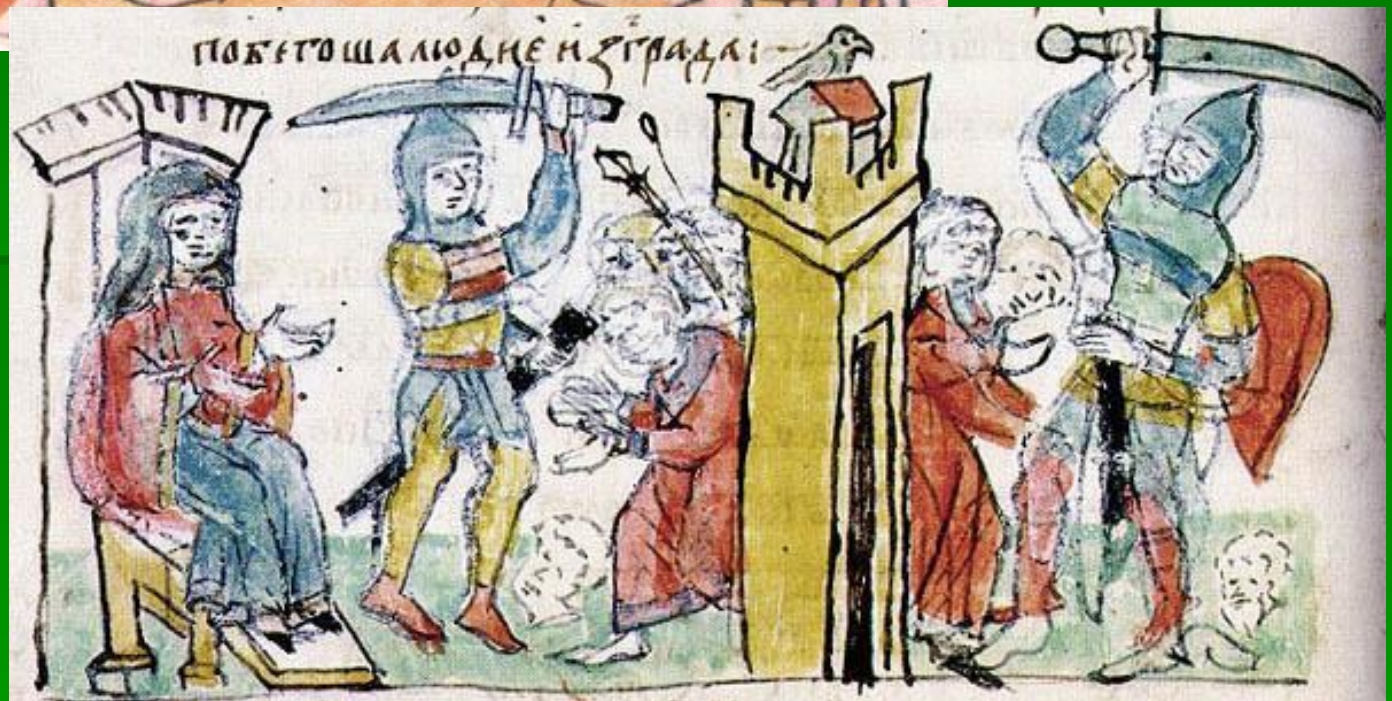 побегоша людие изграда: